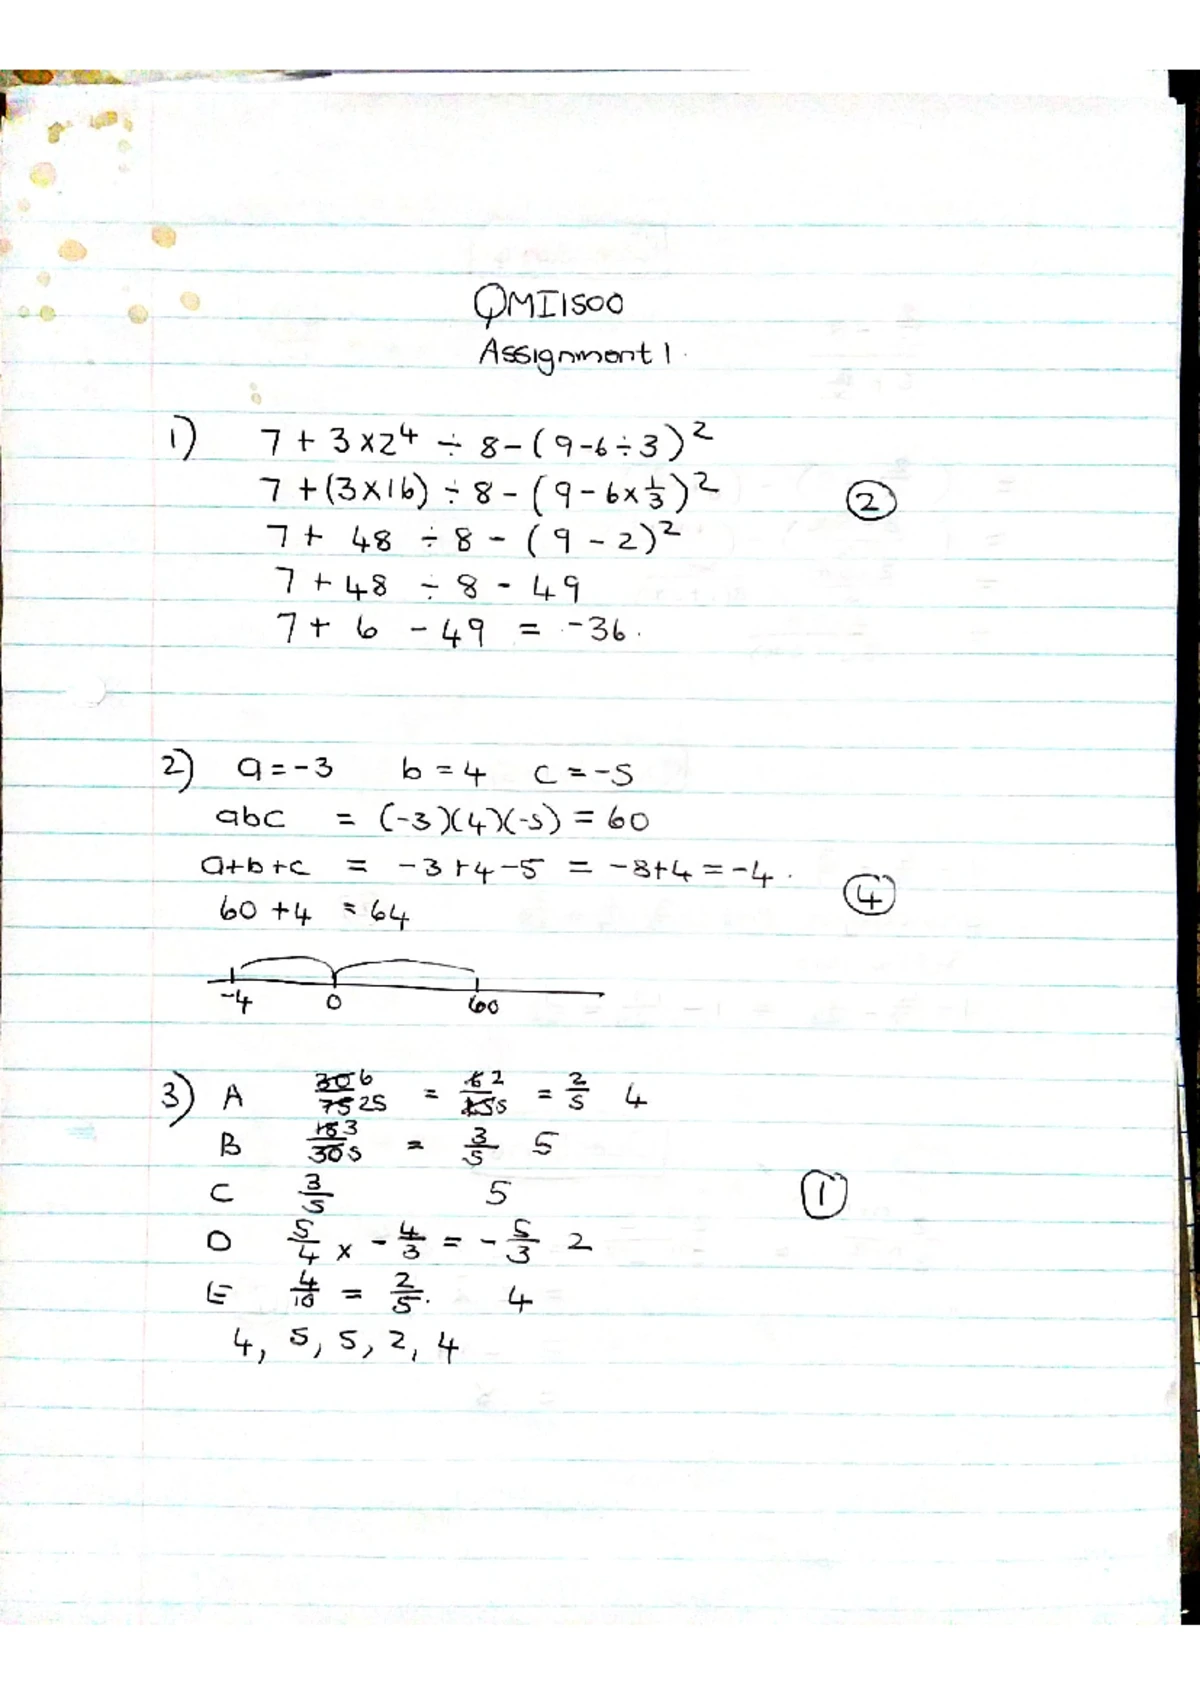 QMI1500
Assignment 1.
1) 7 + 3 × 2⁴ ÷ 8 - (9 - 6 ÷ 3)²
7 + (3 × 16) ÷ 8 - (9 - 6 × 1/3)²
②
7 + 48 ÷ 8 - (9 - 2)²
7 + 48 ÷ 8 - 49
7 + 6 - 49 = -36.
2) a = -3 b = 4 c = -5
abc = (-3)(4)(-5) = 60
a+b+c = -3+4-5 = -8+4 = -4.
④
60 + 4 = 64
-4 0 60
3) A 30 6/75 25 = 6 2/15 5 = 2/5 4
B 18 3/30 5 = 3/5 5
C 3/5 5
①
D 5/4 × -4/3 = -5/3 2
E 4/10 = 2/5. 4
4, 5, 5, 2, 4